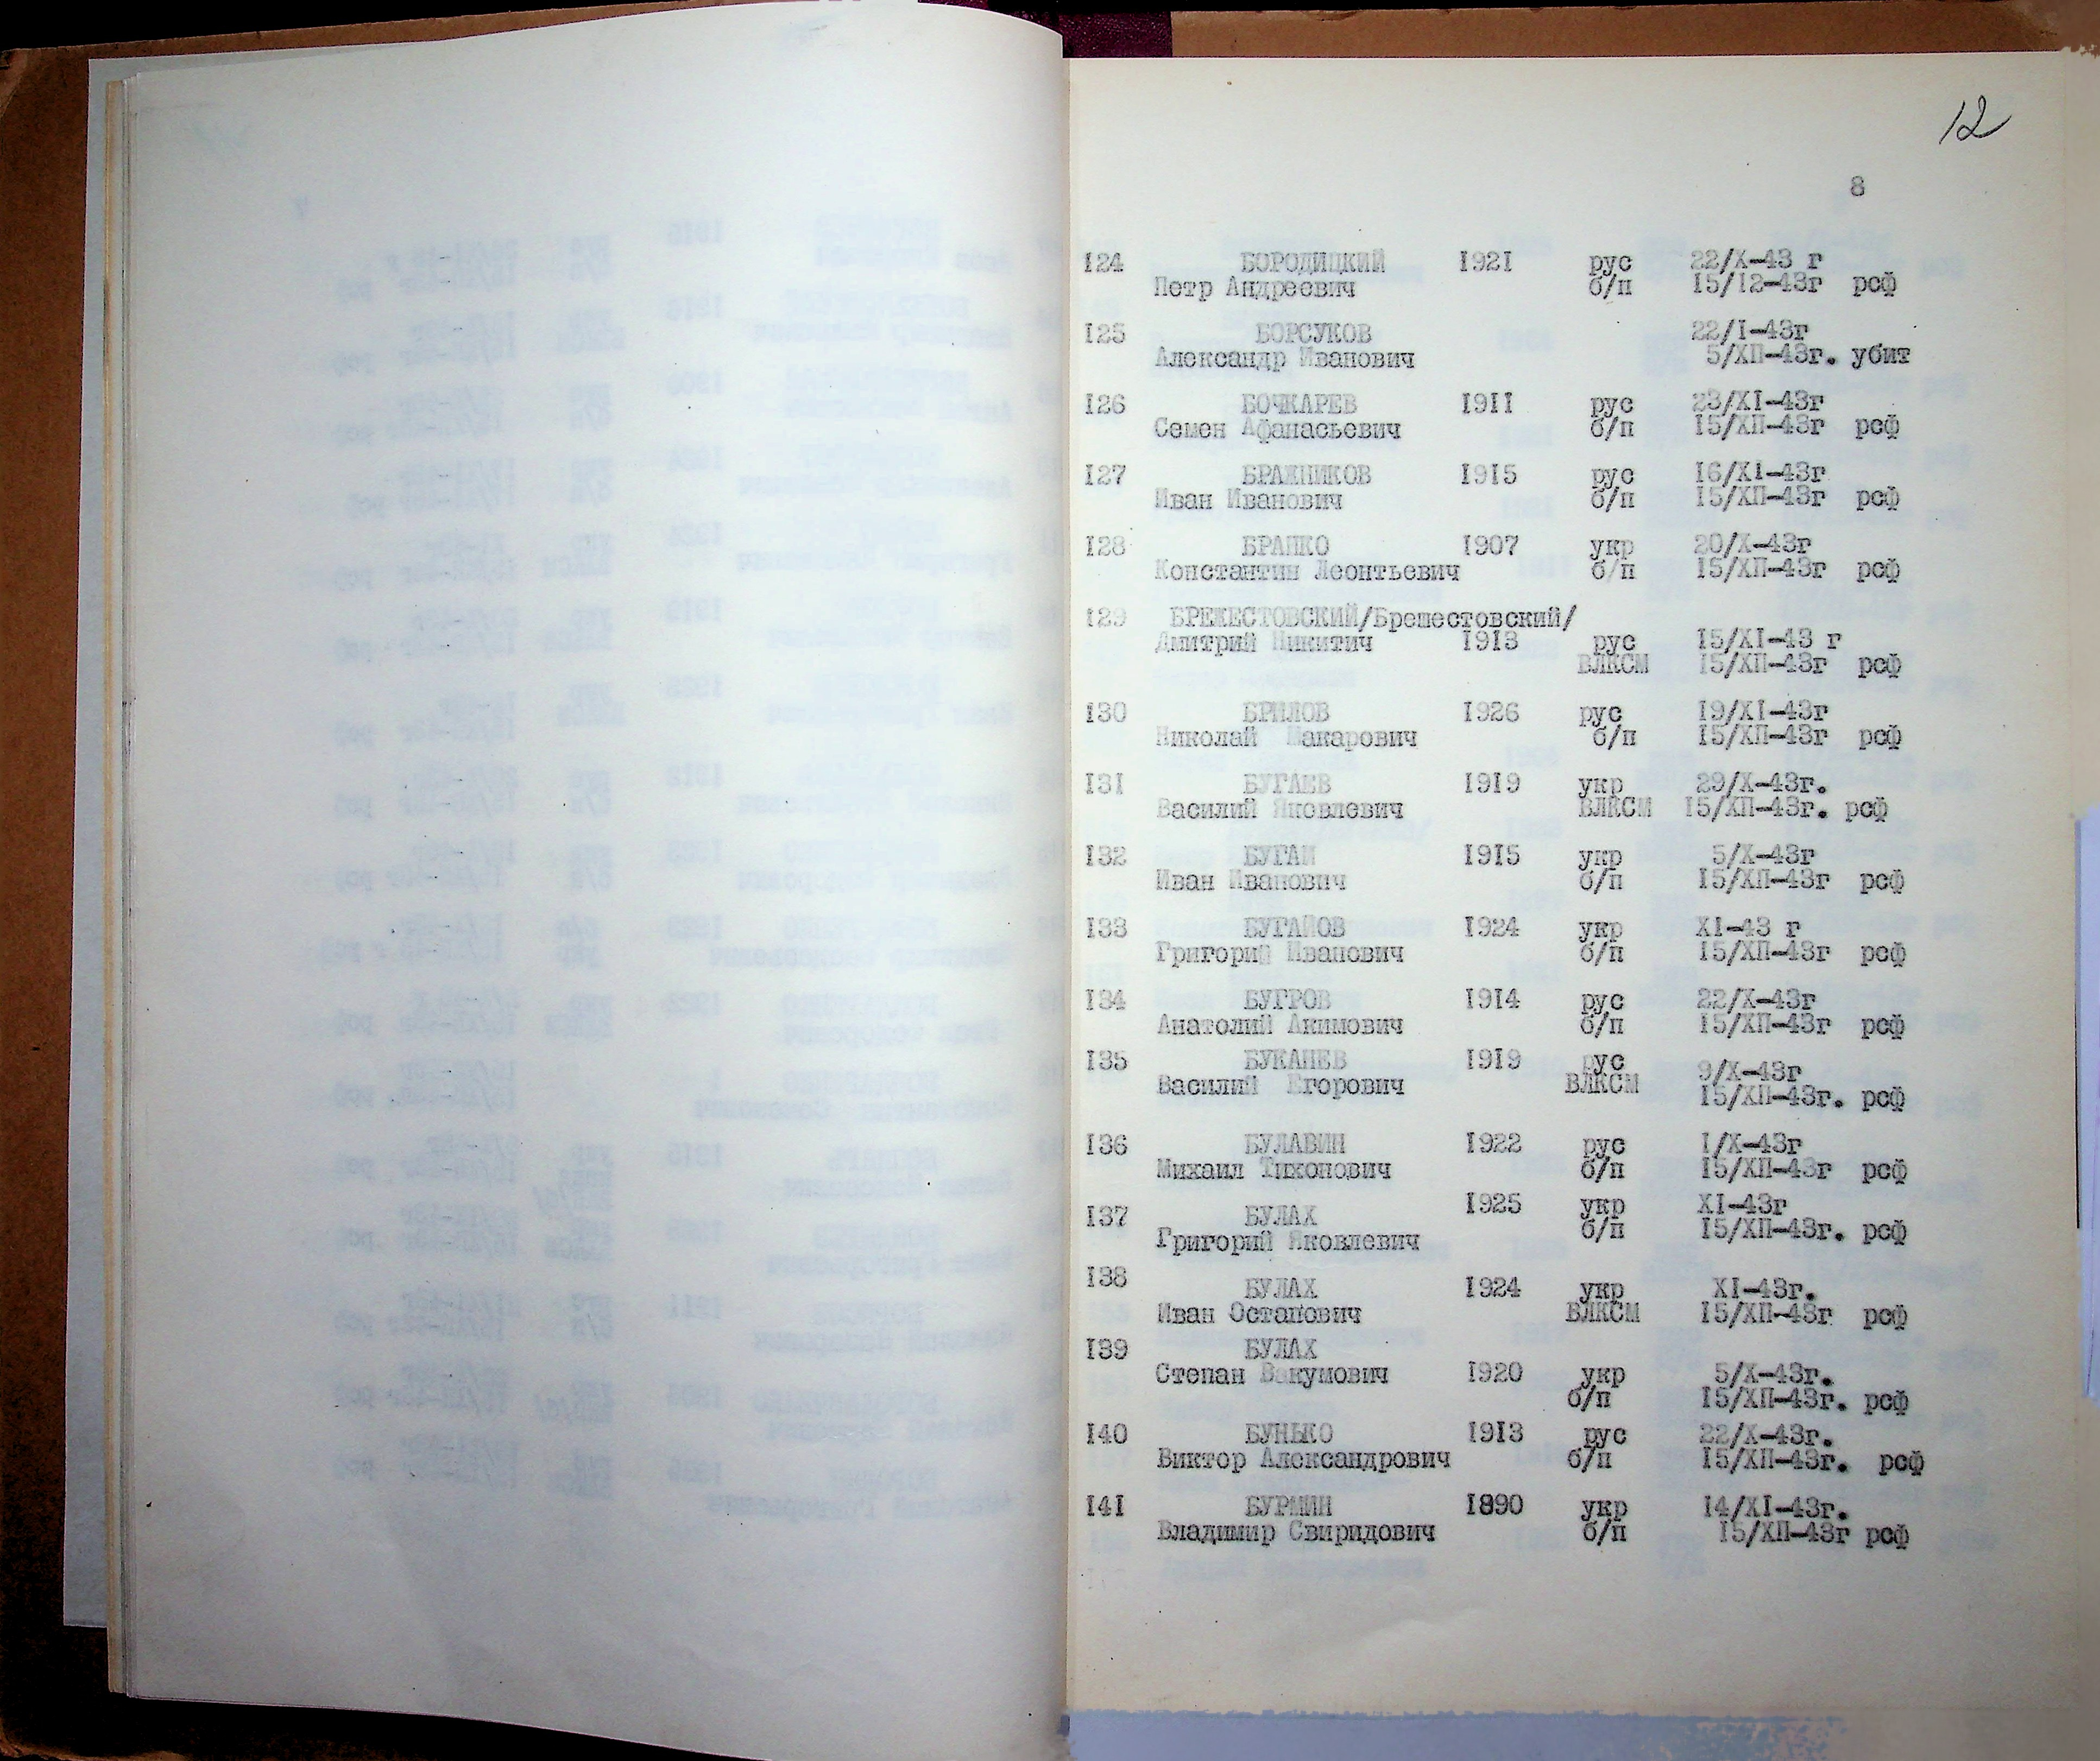 12
8
124 БОРОДИЦКИЙ 1921 рус 22/X-43 г
Петр Андреевич б/п 15/12-43г рсф
125 БОРСУКОВ 22/I-43г
Александр Иванович 5/ХП-43г. убит
126 БОЧКАРЕВ 1911 рус 23/XI-43г
Семен Афанасьевич б/п 15/ХП-43г рсф
127 БРАЖНИКОВ 1915 рус 16/XI-43г
Иван Иванович б/п 15/ХП-43г рсф
128 БРАПКО 1907 укр 20/X-43г
Константин Леонтьевич б/п 15/ХП-43г рсф
129 БРЕЖЕСТОВСКИЙ/Брешестовский/
Дмитрий Никитич 1913 рус 15/XI-43 г
ВЛКСМ 15/ХП-43г рсф
130 БРИЛОВ 1926 рус 19/XI-43г
Николай Макарович б/п 15/ХП-43г рсф
131 БУГАЕВ 1919 укр 29/X-43г.
Василий Яковлевич ВЛКСМ 15/ХП-43г. рсф
132 БУГАЙ 1915 укр 5/X-43г
Иван Иванович б/п 15/ХП-43г рсф
133 БУГАЙОВ 1924 укр XI-43 г
Григорий Иванович б/п 15/ХП-43г рсф
134 БУГРОВ 1914 рус 22/X-43г
Анатолий Акимович б/п 15/ХП-43г рсф
135 БУКАНЕВ 1919 рус 9/X-43г
Василий Егорович ВЛКСМ 15/ХП-43г. рсф
136 БУЛАВИН 1922 рус 1/X-43г
Михаил Тихонович б/п 15/ХП-43г рсф
137 БУЛАХ 1925 укр XI-43г
Григорий Яковлевич б/п 15/ХП-43г. рсф
138 БУЛАХ 1924 укр XI-43г.
Иван Остапович ВЛКСМ 15/ХП-43г рсф
139 БУЛАХ
Степан Вакумович 1920 укр 5/X-43г.
б/п 15/ХП-43г. рсф
140 БУНЬКО 1913 рус 22/X-43г.
Виктор Александрович б/п 15/ХП-43г. рсф
141 БУРМИН 1890 укр 14/XI-43г.
Владимир Свиридович б/п 15/ХП-43г рсф